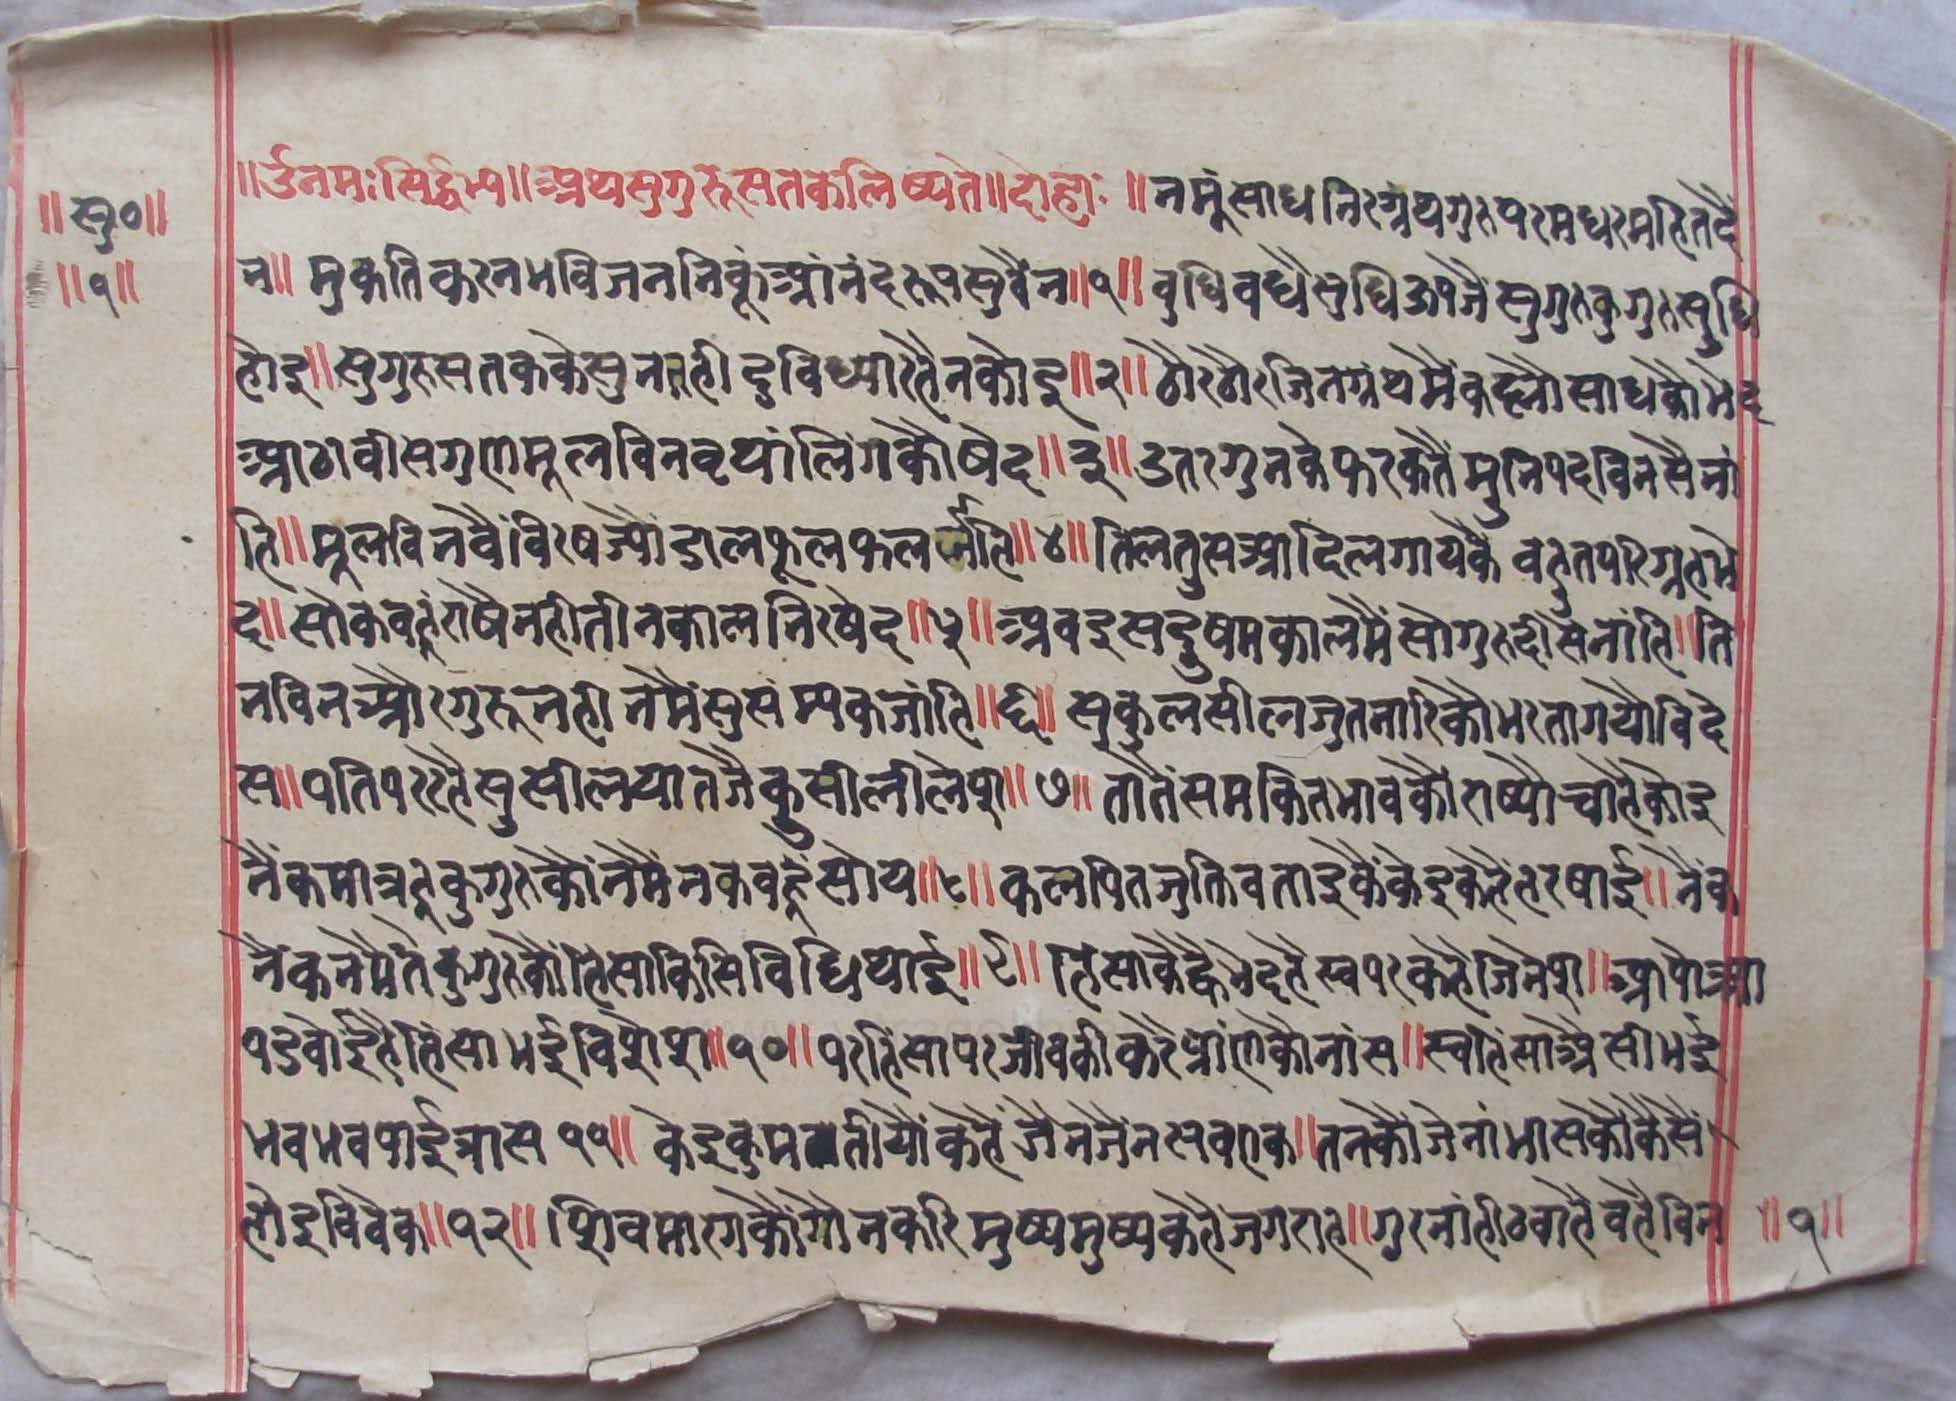 ॥ सु० ॥
॥ १ ॥
॥ ॐ नमः सिद्धेभ्य ॥ अथ सुगुरु सतक लिष्यते ॥ दोहा ॥ नमूं साध निरग्रंथ गुरु परम धरम हित दै
न ॥ मुकति करन भवि जननि कूं आनंद रूप सुवैन ॥ १ ॥ वुधि वधै सुधि ऊपजै सुगुरु कुगुरु सुधि
होइ ॥ सुगुरु सतक के सुनत ही दुविध्या रहै न कोइ ॥ २ ॥ ठौर ठौर जिन ग्रंथ मैं कह्नौ साध कौ भेद
आठावीस गुण मूल विन वृथां लिंग कौ षेद ॥ ३ ॥ उतर गुन के फरक तैं मुनि पद विनसै नां
हि ॥ मूल विनवैं विरष ज्यौं डाल फूल फल र्जांहि ॥ ४ ॥ तिल तुस आदि लगाय कै वहुत परिग्रह भे
द ॥ सो कवहूं राषै नही तीन काल निरषेद ॥ ५ ॥ अव इस दुषम काल मैं सो गुरु दीसै नांहि ॥ ति
न विन और गुरू नही नमैं सु संम्यक जांहि ॥ ६ ॥ सुकुल सील जुत नारि कौ भरता गयौ विदे
स ॥ पति पर रहै सु सील या तजै कुसीली लेश ॥ ७ ॥ तातैं समकित भाव कौ राष्यौ चाहै कोइ
नैंक मात्र हू कुगुरु कौं नमैं न कवहूं सोय ॥ ८ ॥ कलपित जुक्ति वताइ कैं केइ कहैं हरषाई ॥ नैंक
नैंक नमैं तै कुगुरु कौं हिंसा किसि विधि थाई ॥ ९ ॥ हिंसा के द्वै भेद है स्व पर कहै जिनेश ॥ आपौ आ
प डवोई है हिंसा भई विशेश ॥ १० ॥ पर हिंसा पर जीव की करै प्रांण कौ नांस ॥ स्व हिंसा अैसी भई
भव भव पाई त्रास ११ ॥ केइ कुमती यौं कहैं जैन जैन सव एक ॥ तन कौ जेनांभास कौ कैसैं
होइ विवेक ॥ १२ ॥ शिव मारग कौं गौन करि मुष्य मुष्य कहै जगराह ॥ गुर नांही ठवाहै वहै विन
॥ १ ॥